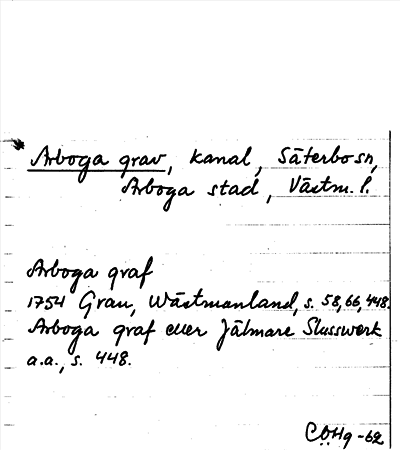 Arboga grav, kanal, Säterbo sn,
Arboga stad, Västm. l.
Arboga graf
1754 Grau, Wästmanland, s. 58, 66, 448.
Arboga graf eller Jälmare Slusswerk
a.a., s. 448.
-62